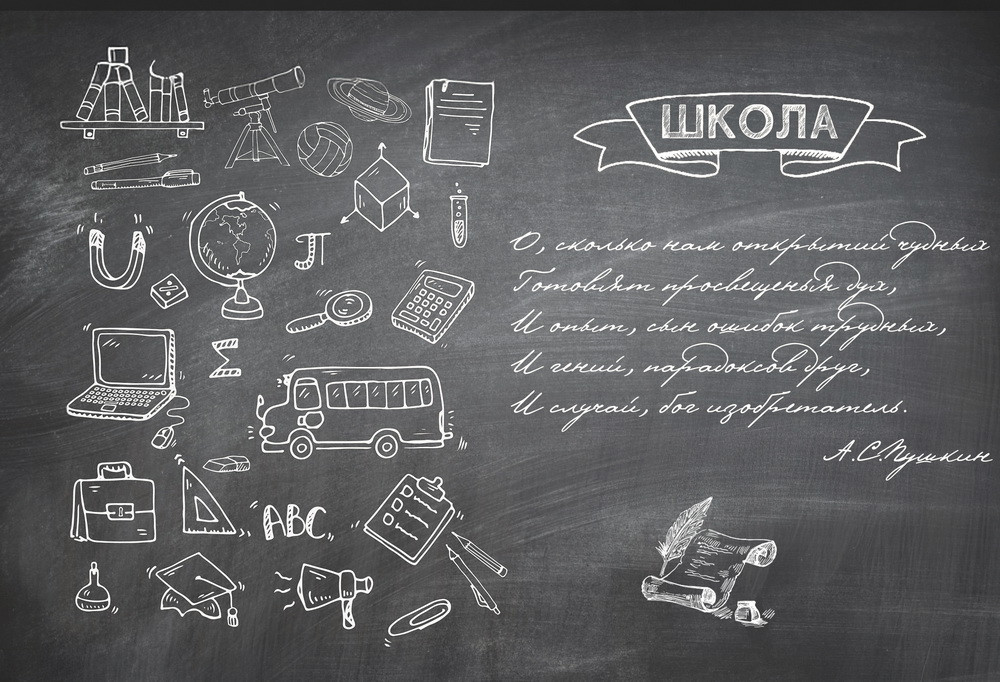 ШКОЛА
О, сколько нам открытий чудных
Готовят просвещенья дух,
И опыт, сын ошибок трудных,
И гений, парадоксов друг,
И случай, бог изобретатель.
А.С.Пушкин
π
Σ
ABC